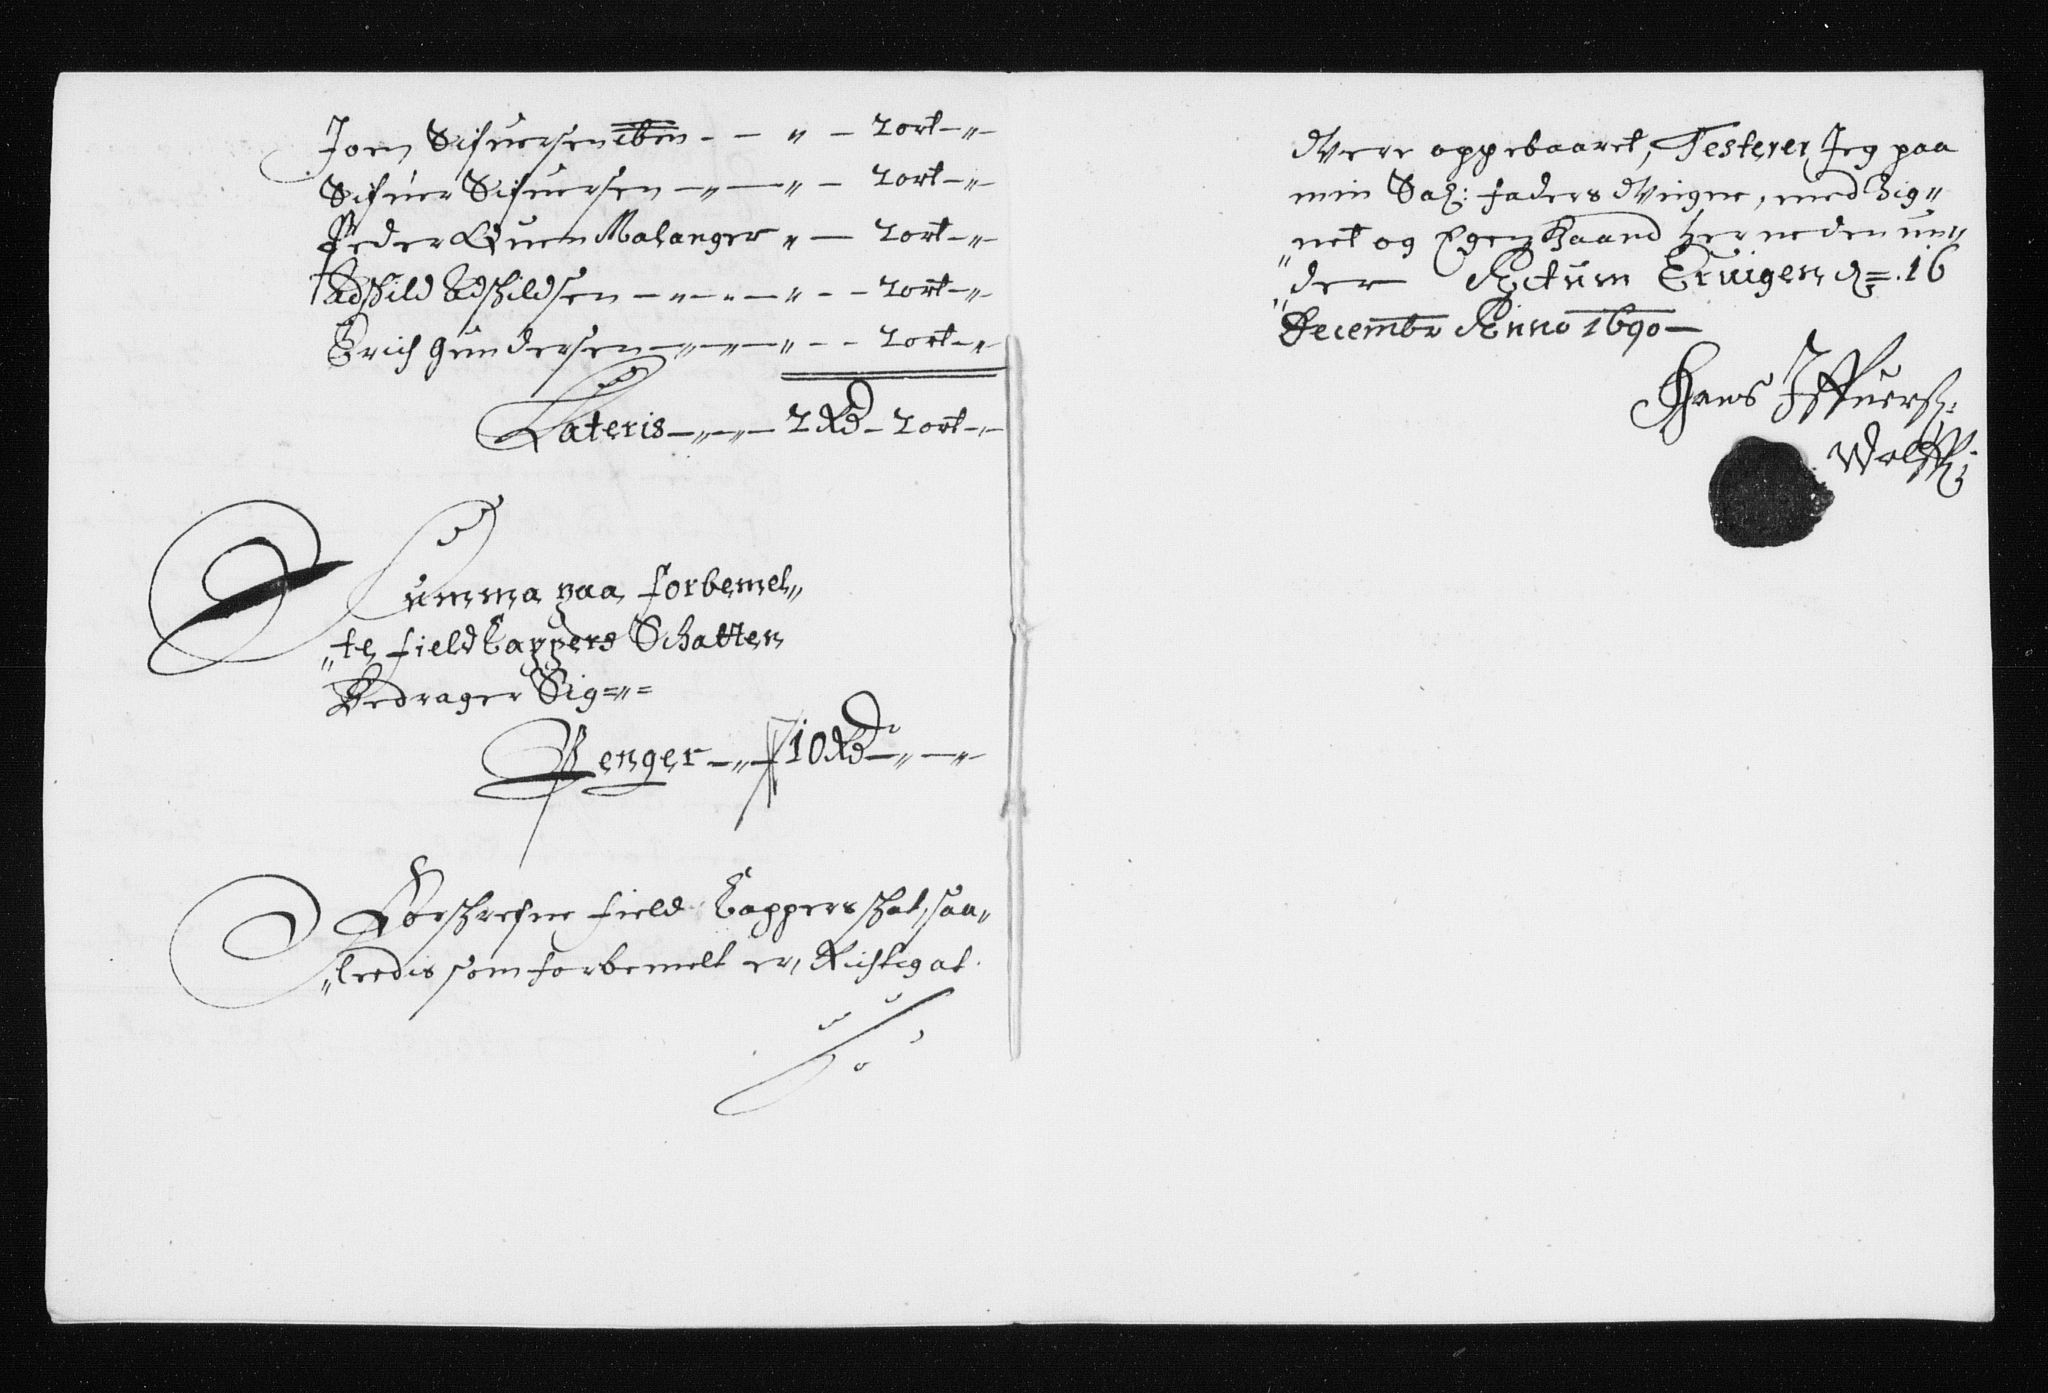 Joen Sifuersen ibm - - " - 2 ort - "
Sifuer Sifuersen - " - " - 2 ort - "
Peder Quen Malanger " - 2 ort - "
Adskild Adskildsen - " - " - " - - 2 ort - "
Erich Gundersen - " - " - " - - 2 ort - "
Lateris - " - " - 2 Rd - 2 ort - "
Summa paa forbemel"
"te field Lappers Schatten
Bedrager Sig = " =
Penger - " - 10 Rd - " - "
Forschrefne field Lappers schat, saa"
"leedis som forbemelt er, Richtig at
Were oppebaaret, Testerer Jeg paa
min Sal: faders Weigne, med Zig"
"net og Egen Haand her neden un"
"der Actum Cruigen d = 16
Decembr Anno 1690 -
Hans Iffuers:
Wolff